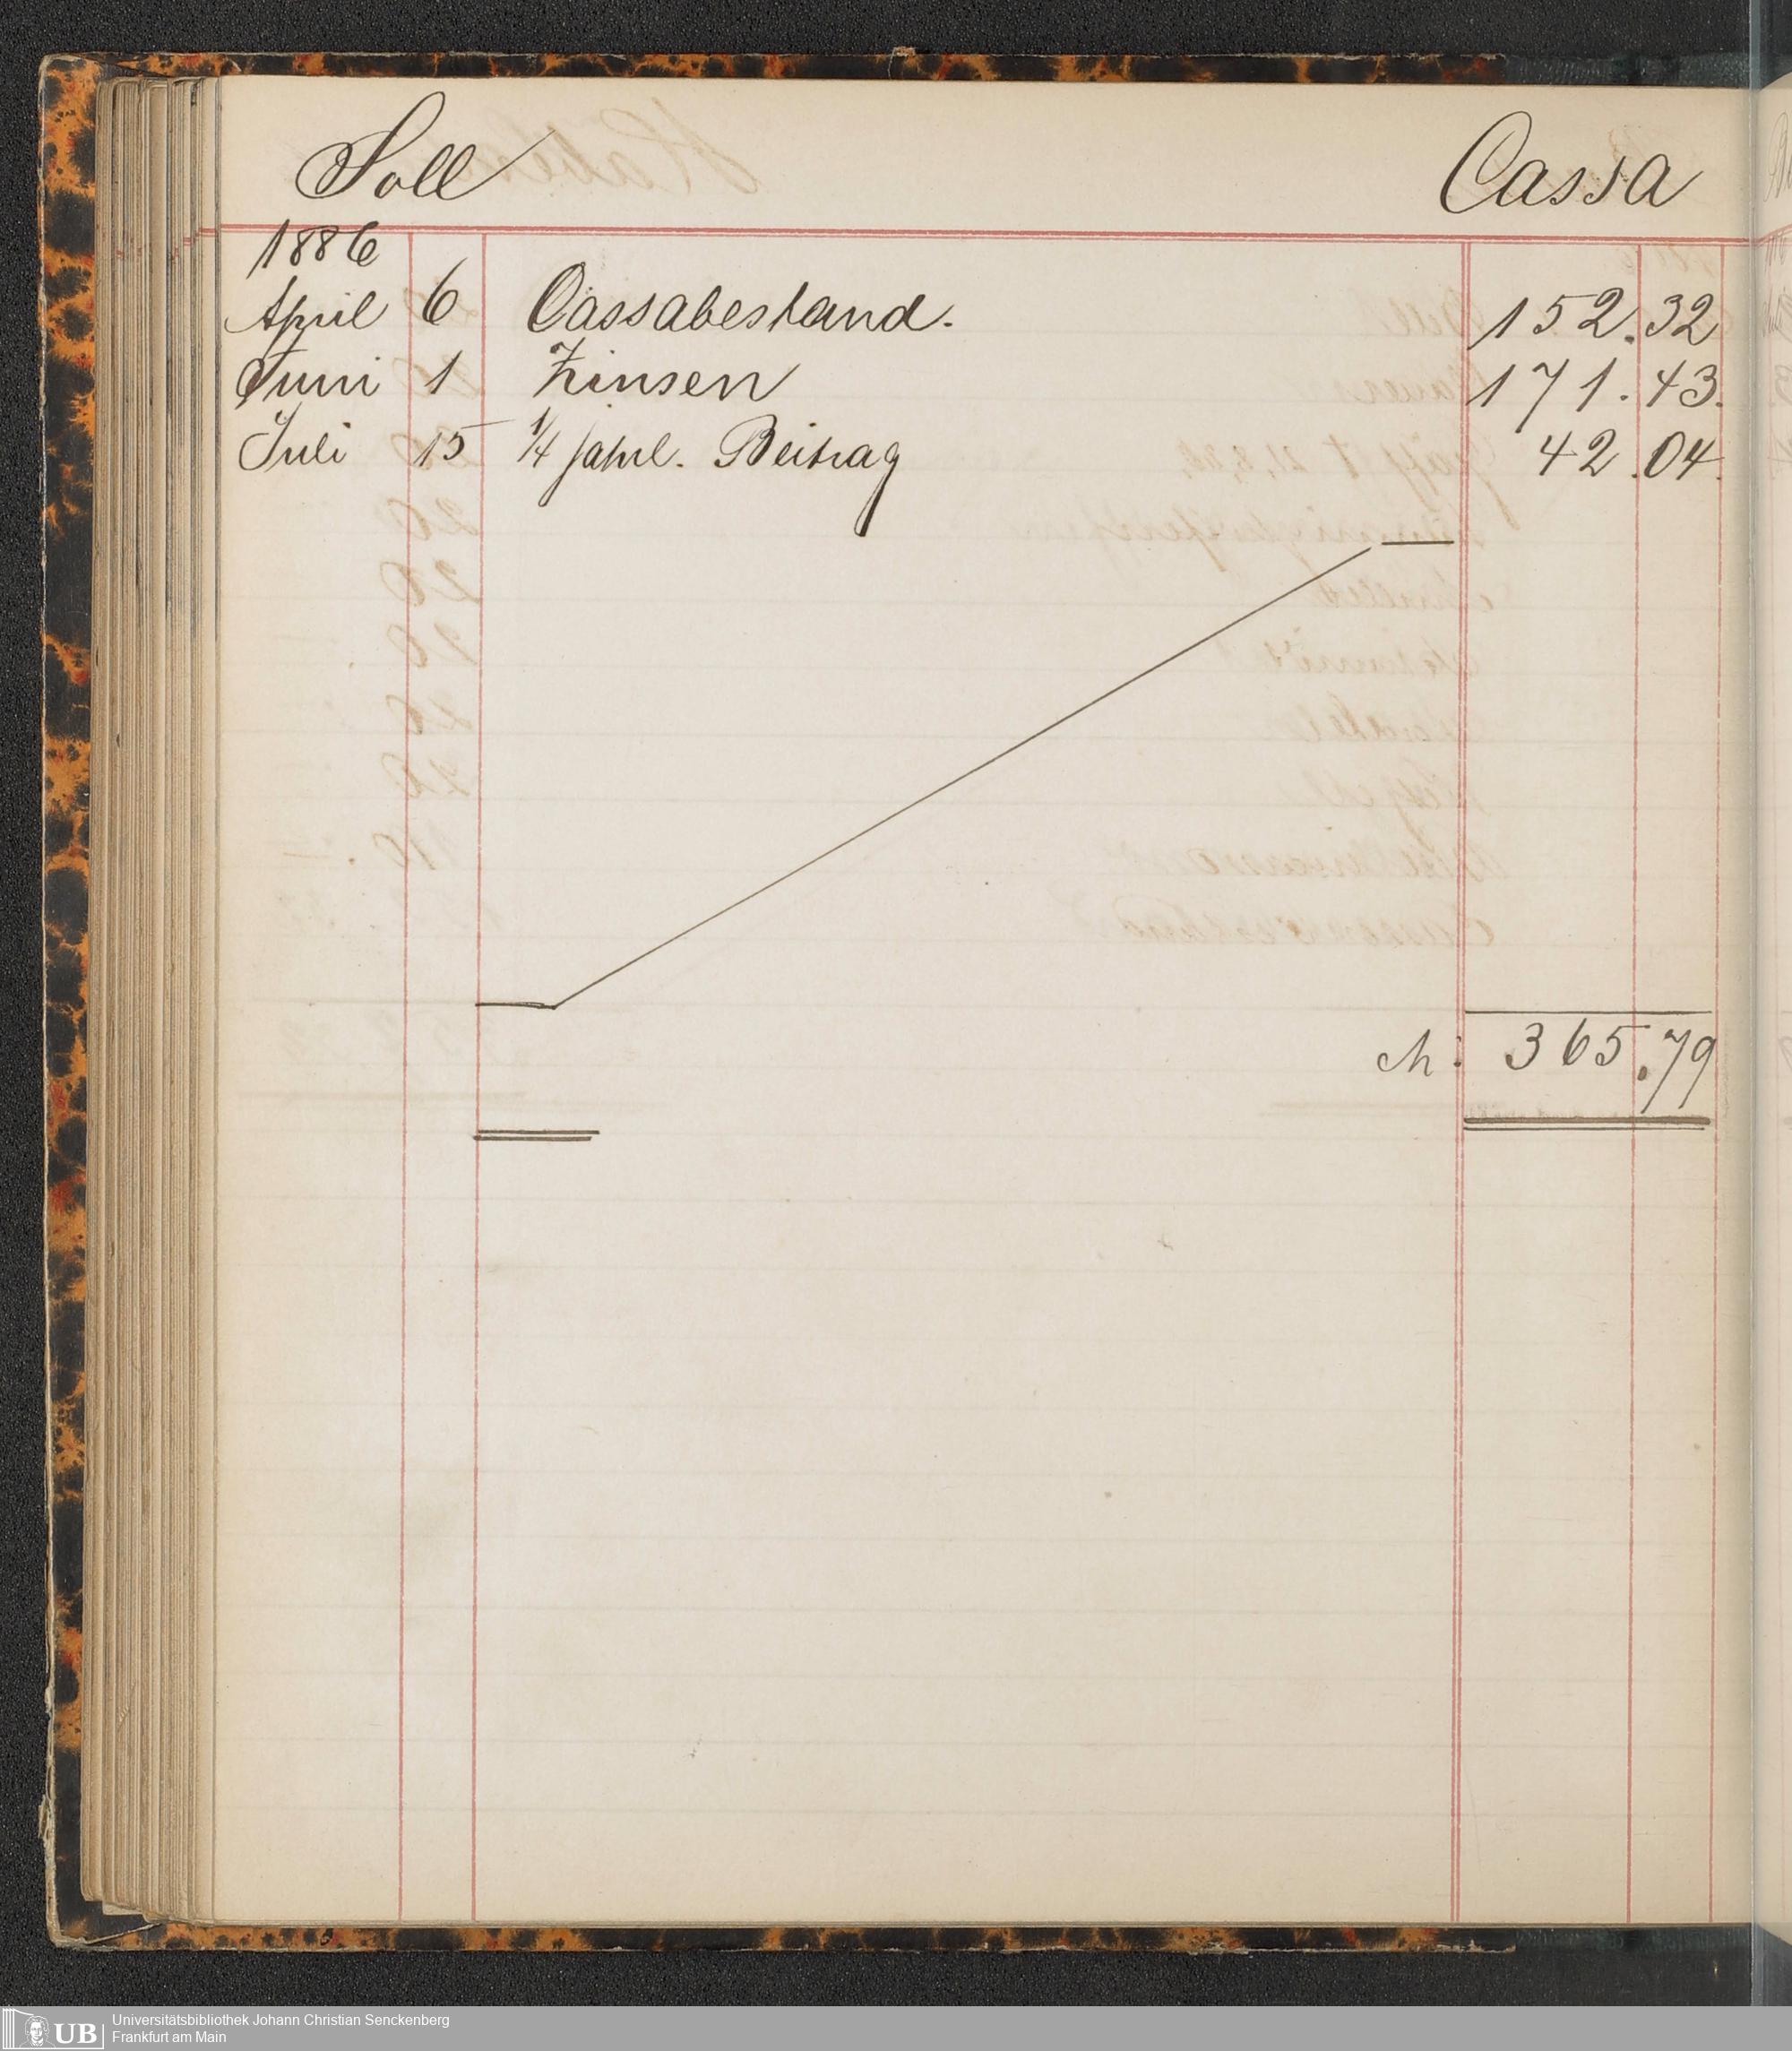 Soll Cassa
1886
April 6 Cassabestand. 152.32
Juni 1 Zinsen 171.43.
Juli 15 1/4 jahrl. Beitrag 42.04.
M: 365.79
UB Universitätsbibliothek Johann Christian Senckenberg
Frankfurt am Main